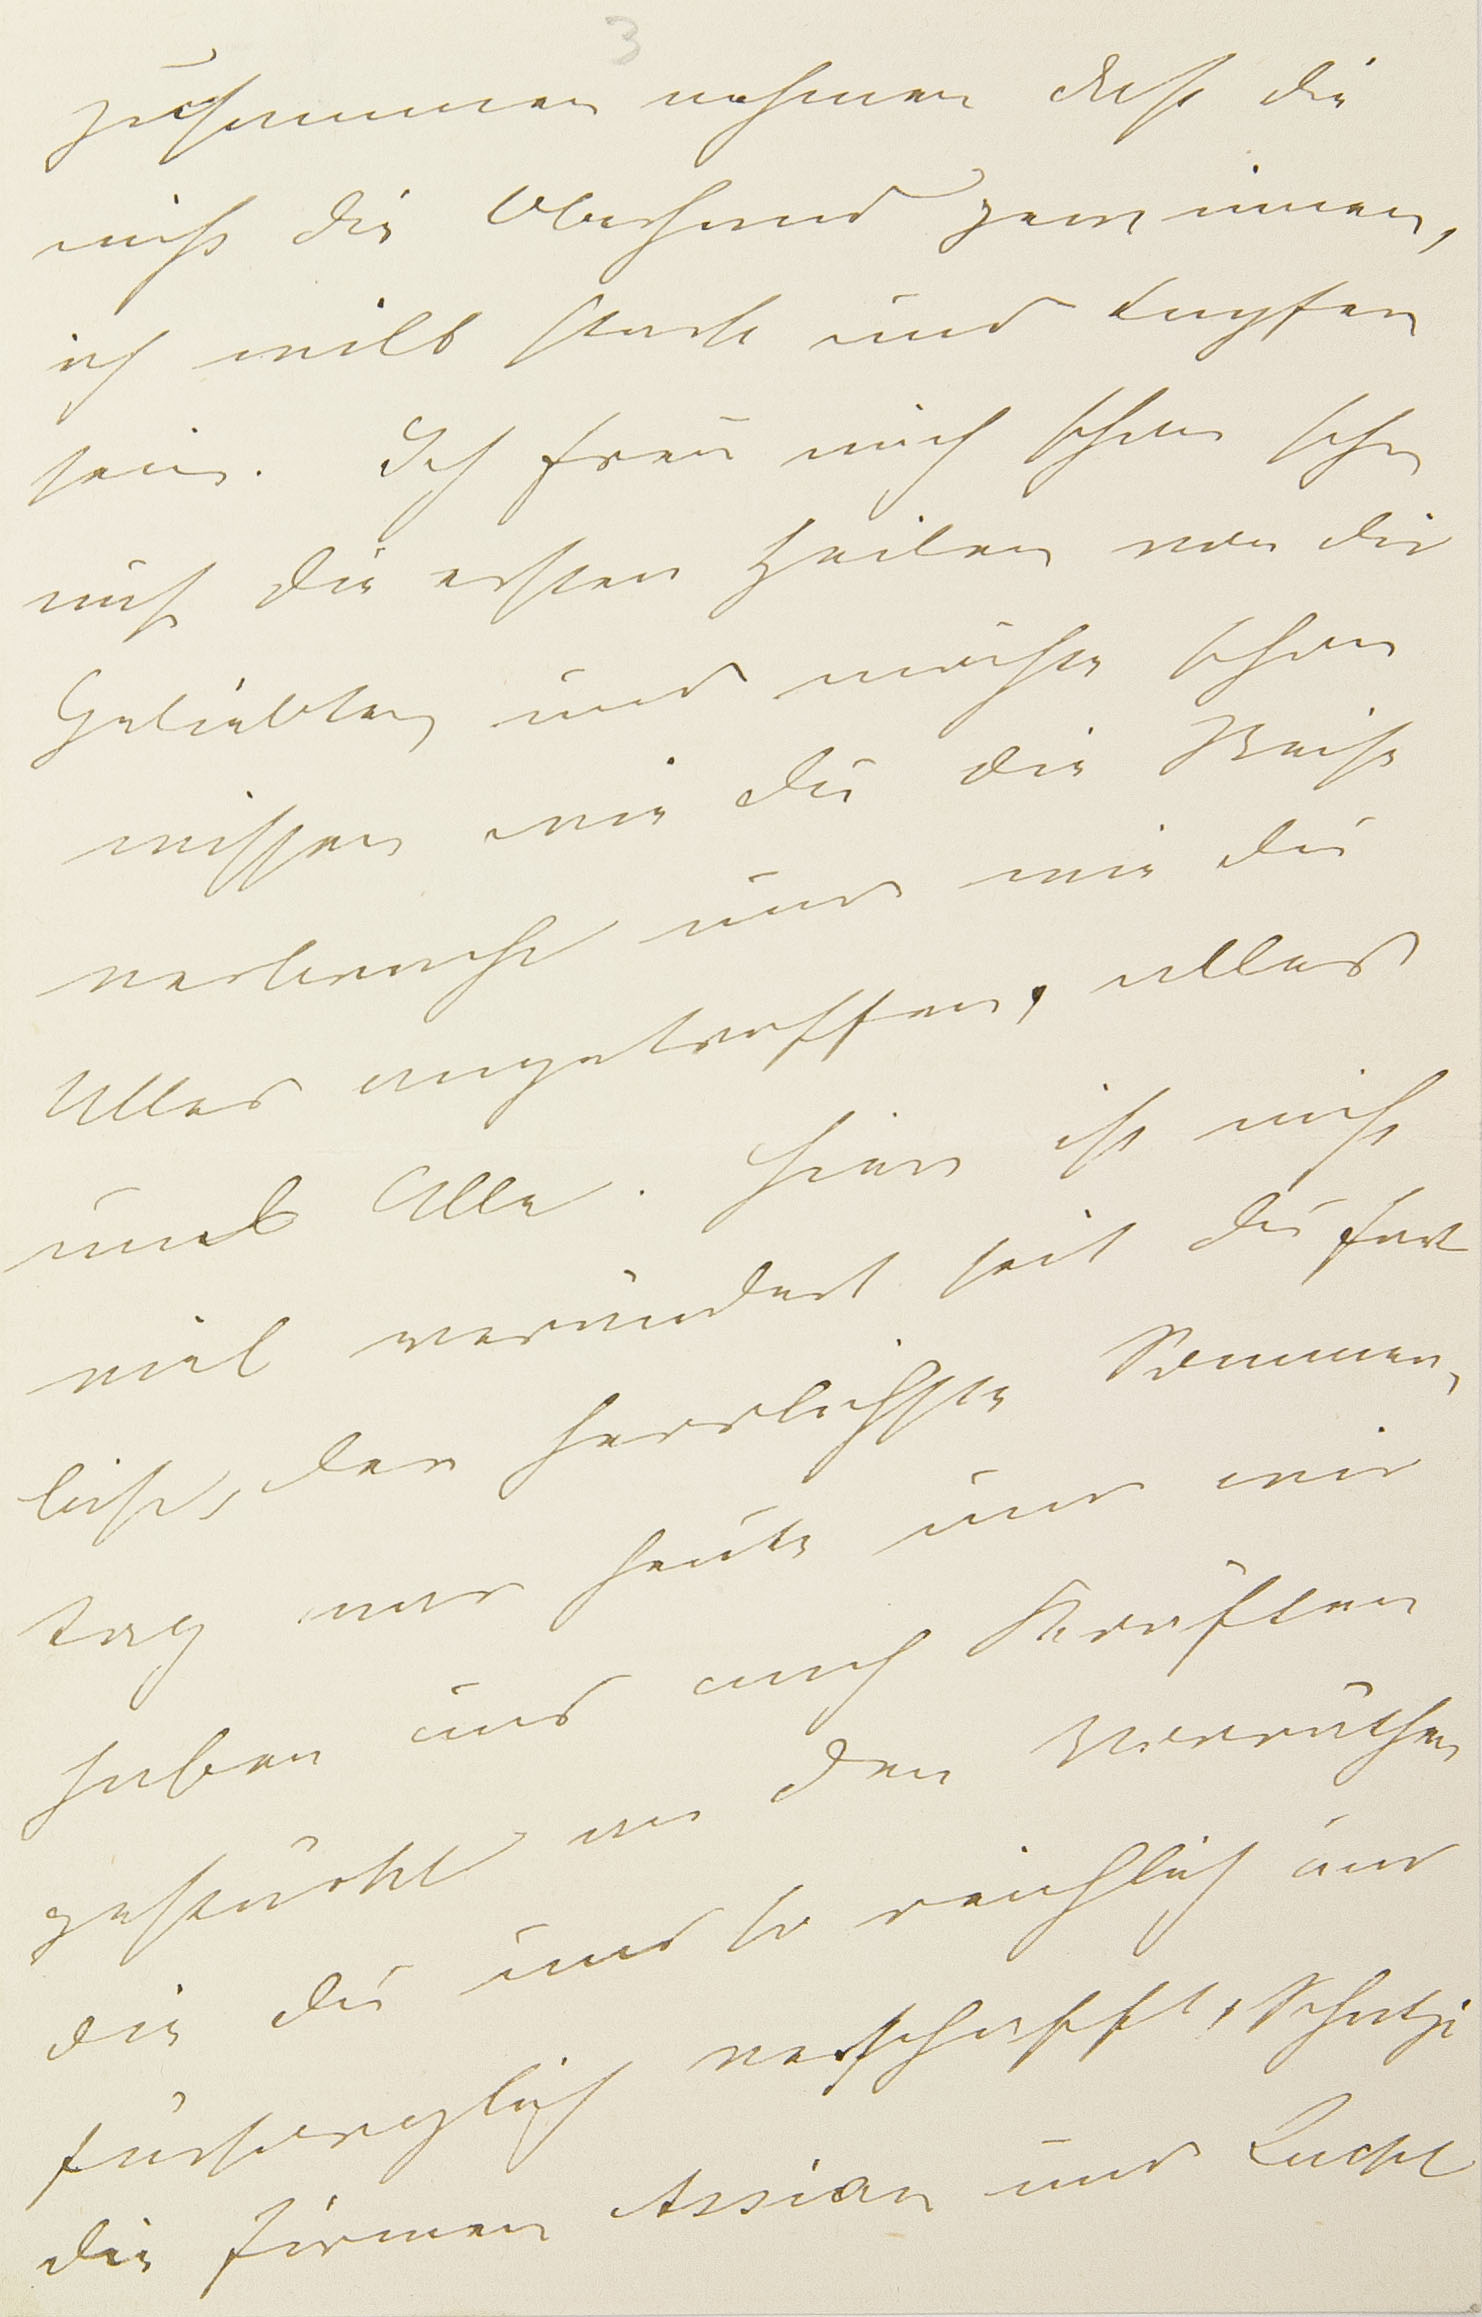 3
zusammen nehmen daß die
nicht die Oberhand gewinnen,
ich will stark und tapfer
sein. Ich freu mich schon sehr
auf die ersten Zeilen von dir
Geliebter und möchte schon
wissen wie du die Reise
verbracht und wie du
Alles angetroffen, alles
und Alle. Hier ist nicht
viel verändert seit du fort
bist, der herrlichste Sommer,
tag war heute und wir
haben uns nach Kräften
gestärkt an den Vorräthen
die du uns so reichlich und
fürsorglich verschafft, Schatzi
die Firmen Assian und